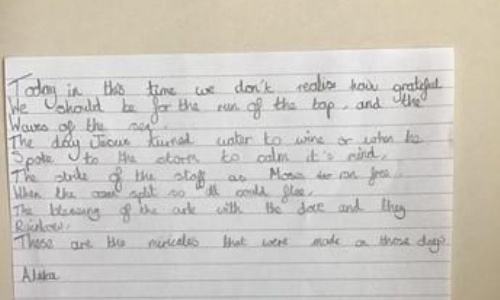 Today in this time we don't realise how grateful
We should be for the run of the tap, and the
Waves of the sea
The day Jesus turned water to wine or when he
Spoke to the storm to calm it's mind,
The strike of the staff as Moses ran free
When the split so all could flee,
The blessing of the ark with the dove and they
Rainbow,
These are the miricales that were made on those days